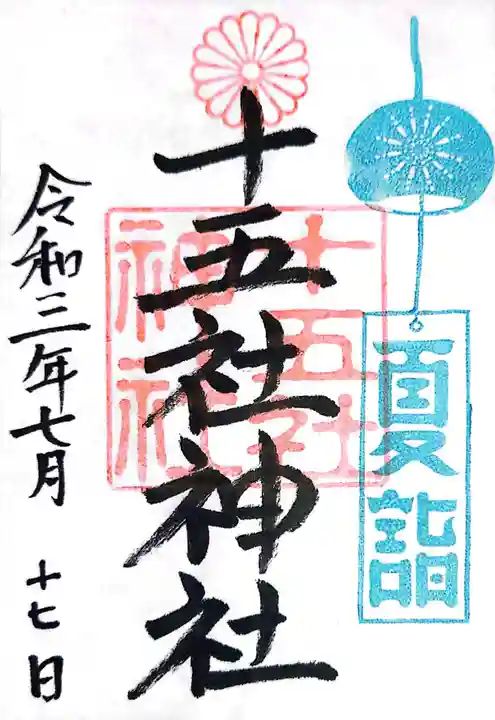 夏詣
十五社神社
十五社
神社
令和三年七月
十七日